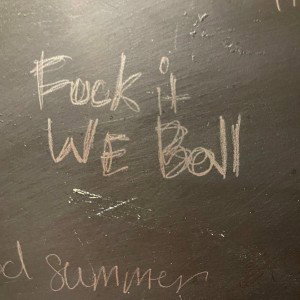 Fuck it
WE Ball
d summer